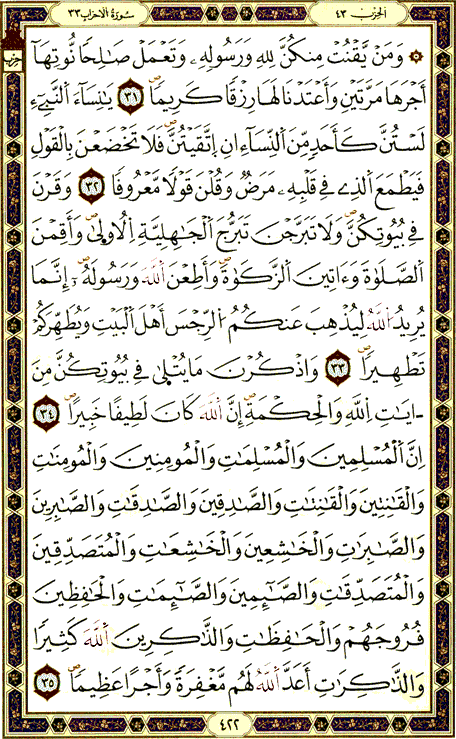 سُورَةُ الْأَحْزَابِ ٣٣
الْحِزْبُ ٤٣
۞ وَمَنْ يَّقْنُتْ مِنكُنَّ لِلهِ وَرَسُولِهِۦ وَتَعْمَلْ صَٰلِحاً نُّوتِهَآ
أَجْرَهَا مَرَّتَيْنِ وَأَعْتَدْنَا لَهَا رِزْقاً كَرِيماًۖ ٣١ يَٰنِسَآءَ اَ۬لنَّبِےٓءِ
لَسْتُنَّ كَأَحَدٖ مِّنَ اَ۬لنِّسَآءِ اِنِ اِ۪تَّقَيْتُنَّۖ فَلَا تَخْضَعْنَ بِالْقَوْلِ
فَيَطْمَعَ اَ۬لذِے فِے قَلْبِهِۦ مَرَضٞ وَقُلْنَ قَوْلاً مَّعْرُوفاًۖ ٣٢ وَقَرْنَ
فِے بُيُوتِكُنَّۖ وَلَا تَبَرَّجْنَ تَبَرُّجَ اَ۬لْجَٰهِلِيَّةِ اِ۬لُاول۪ىٰۖ وَأَقِمْنَ
اَ۬لصَّلَوٰةَ وَءَاتِينَ اَ۬لزَّكَوٰةَۖ وَأَطِعْنَ اَ۬للَّهَ وَرَسُولَهُۥٓۖ إِنَّمَا
يُرِيدُ اُ۬للَّهُ لِيُذْهِبَ عَنكُمُ اُ۬لرِّجْسَ أَهْلَ اَ۬لْبَيْتِ وَيُطَهِّرَكُمْ
تَطْهِيراًۖ ٣٣ وَاذْكُرْنَ مَا يُتْل۪ىٰ فِے بُيُوتِكُنَّ مِنَ
اٰيَٰتِ اِ۬للَّهِ وَالْحِكْمَةِۖ إِنَّ اَ۬للَّهَ كَانَ لَطِيفاً خَبِيراًۖ ٣٤
اِنَّ اَ۬لْمُسْلِمِينَ وَالْمُسْلِمَٰتِ وَالْمُومِنِينَ وَالْمُومِنَٰتِ
وَالْقَٰنِتِينَ وَالْقَٰنِتَٰتِ وَالصَّٰدِقِينَ وَالصَّٰدِقَٰتِ وَالصَّٰبِرِينَ
وَالصَّٰبِرَٰتِ وَالْخَٰشِعِينَ وَالْخَٰشِعَٰتِ وَالْمُتَصَدِّقِينَ
وَالْمُتَصَدِّقَٰتِ وَالصَّٰٓئِمِينَ وَالصَّٰٓئِمَٰتِ وَالْحَٰفِظِينَ
فُرُوجَهُمْ وَالْحَٰفِظَٰتِ وَالذَّٰكِرِينَ اَ۬للَّهَ كَثِيراً
وَالذَّٰكِرَٰتِ أَعَدَّ اَ۬للَّهُ لَهُم مَّغْفِرَةً وَأَجْراً عَظِيماًۖ ٣٥
٤٢٢